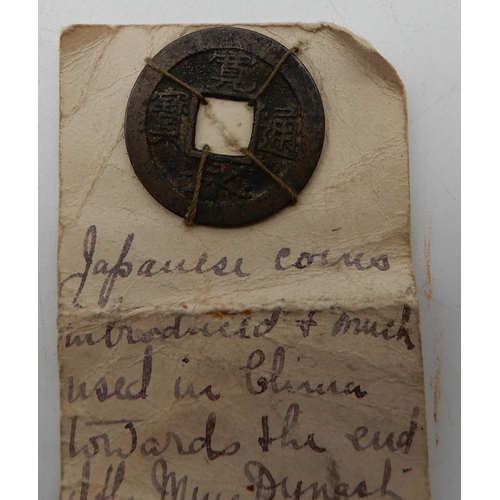 寛永通寳
Japanese coins
introduced & much
used in China
towards the end
of the Ming Dynast